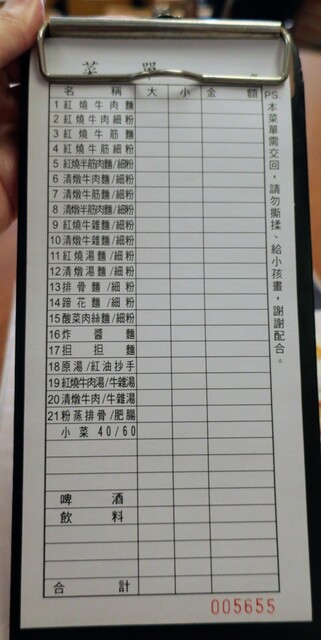 菜 單
名稱 大 小 金額
1 紅燒牛肉麵
2 紅燒牛肉細粉
3 紅燒牛筋麵
4 紅燒牛筋細粉
5 紅燒半筋肉麵/細粉
6 清燉牛肉麵/細粉
7 清燉牛筋麵/細粉
8 清燉半筋肉麵/細粉
9 紅燒牛雜麵/細粉
10 清燉牛雜麵/細粉
11 紅燒湯麵/細粉
12 清燉湯麵/細粉
13 排骨麵/細粉
14 蹄花麵/細粉
15 酸菜肉絲麵/細粉
16 炸醬麵
17 担担麵
18 原湯/紅油抄手
19 紅燒牛肉湯/牛雜湯
20 清燉牛肉/牛雜湯
21 粉蒸排骨/肥腸
小菜 40/60
啤酒
飲料
合計
PS.本菜單需交回，請勿撕揉、給小孩畫，謝謝配合。
005655